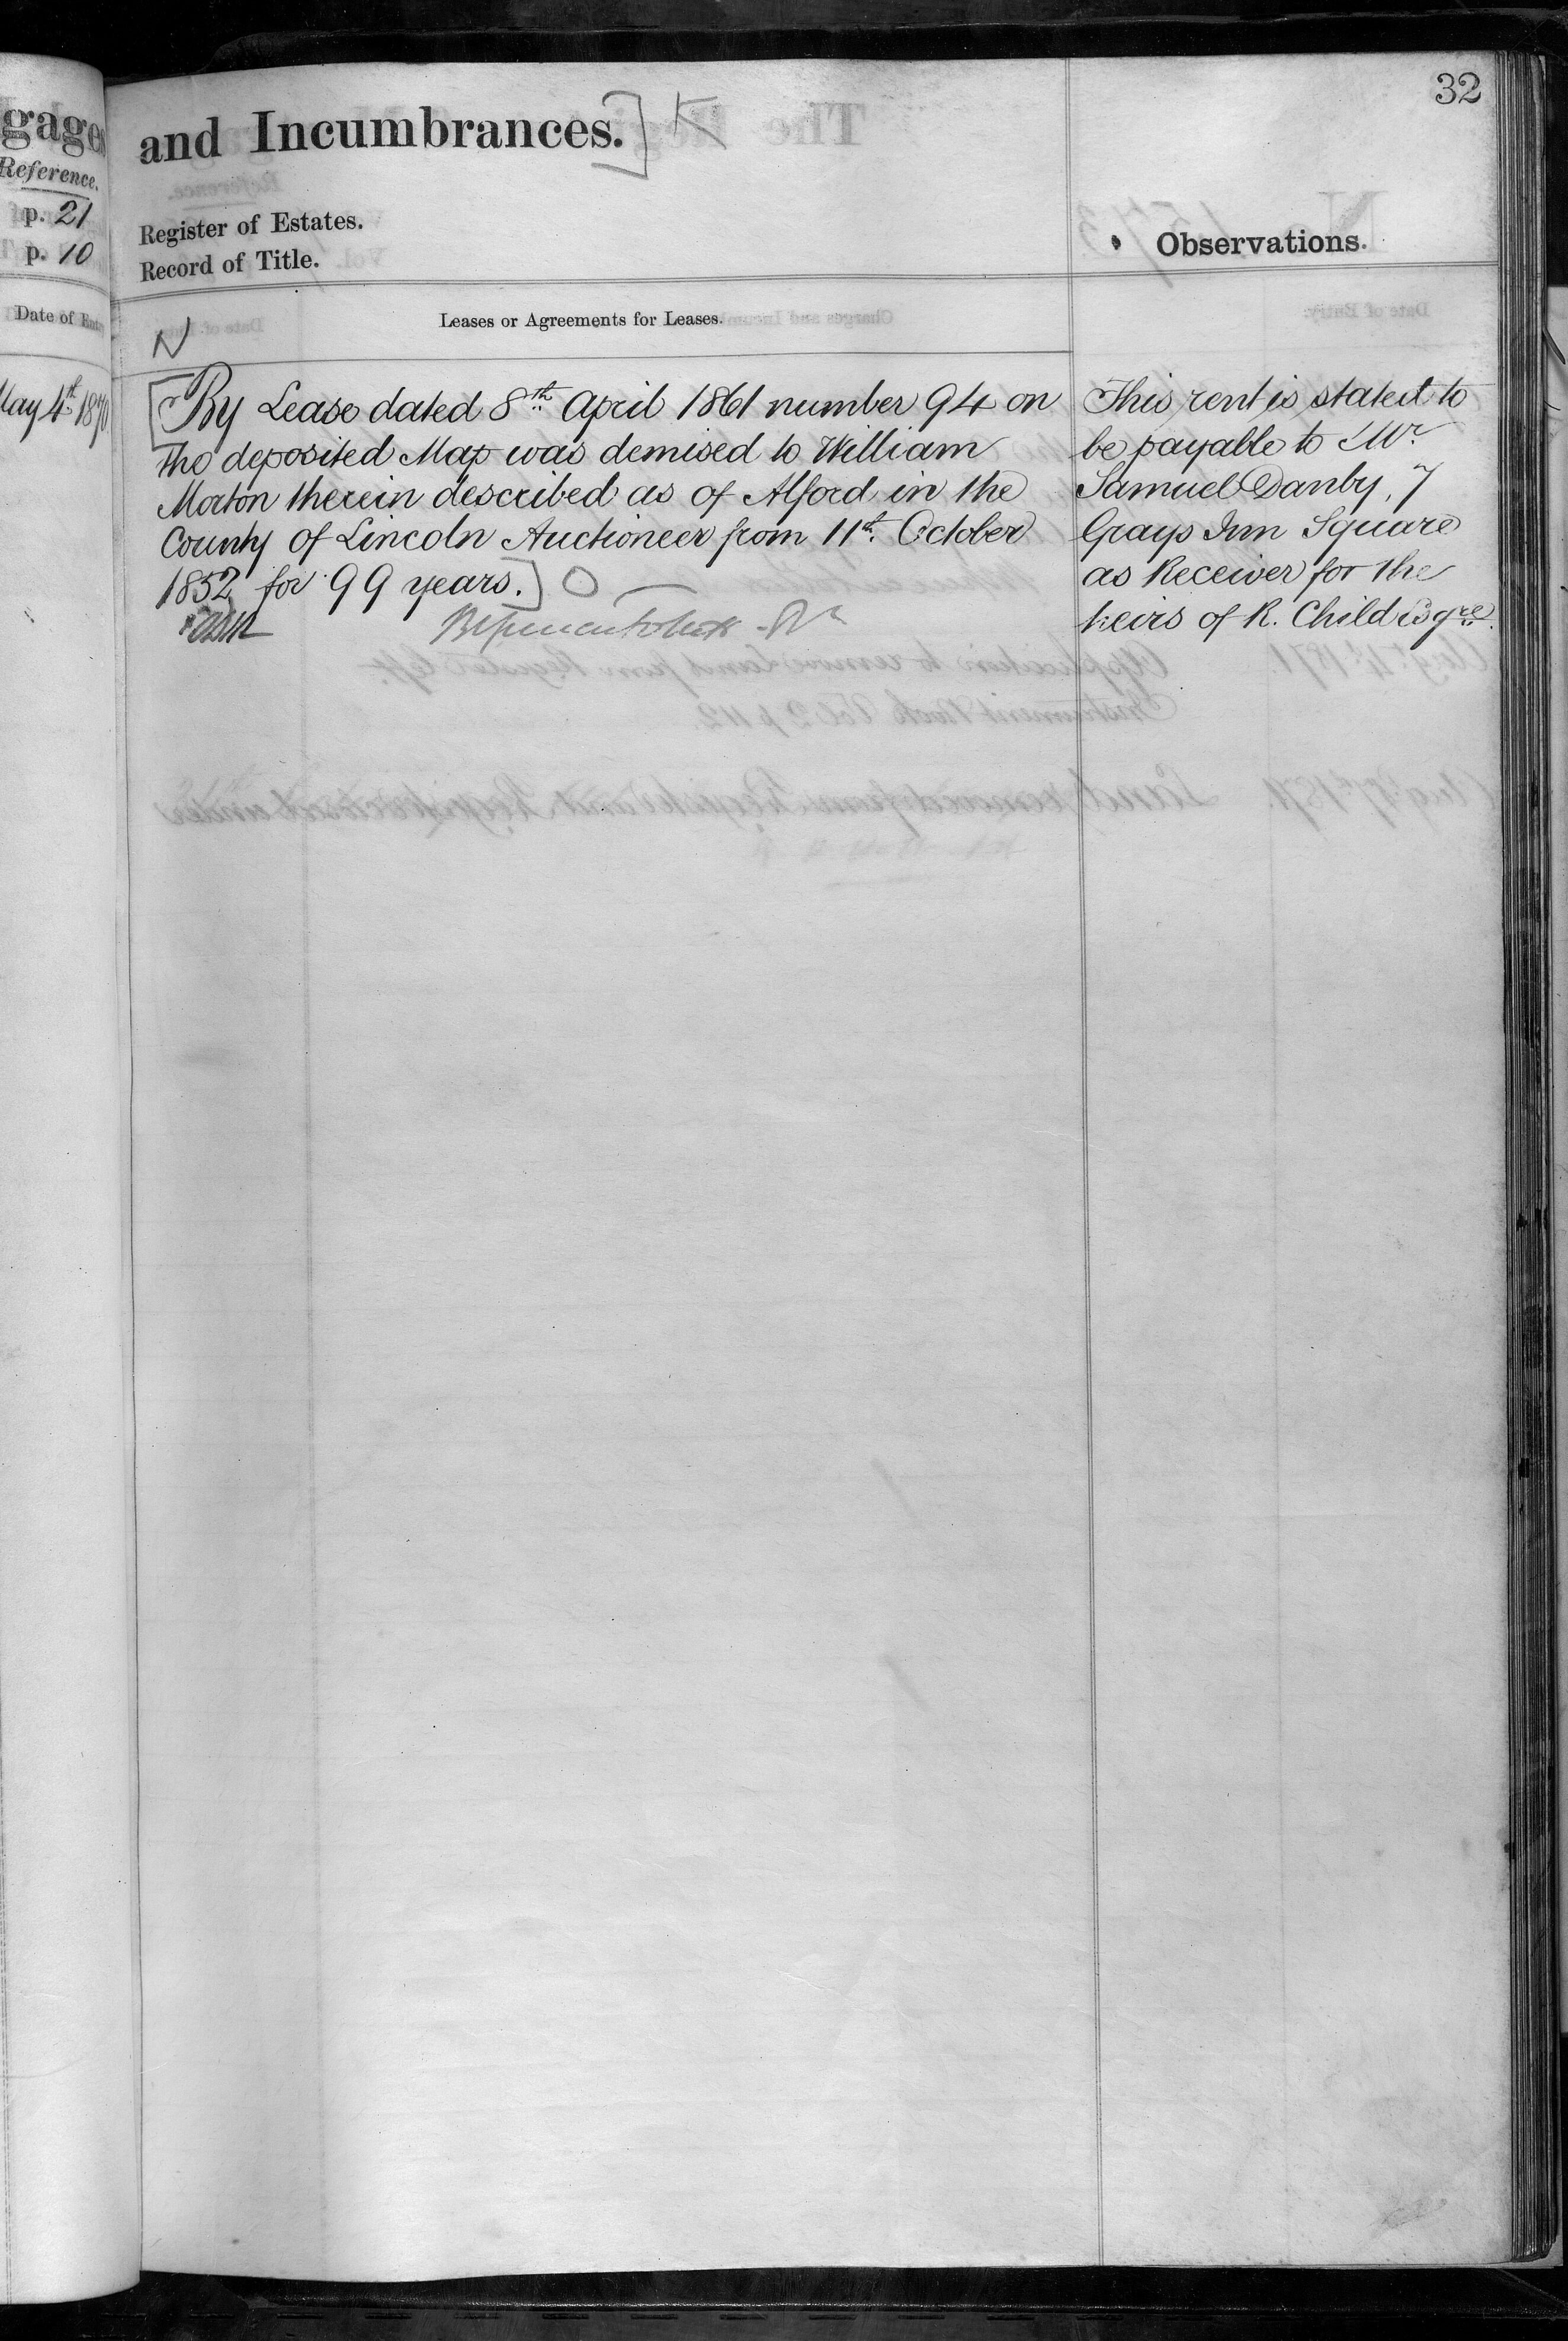 32
gage
Reference.
p. 21
p. 10
Date of
May 4th 1870
and Incumbrances.] K
Register of Estates.
Record of Title.
Observations.
N
Leases or Agreements for Leases.
[By Lease dated 8th April 1861 number 94 on
the deposited Map was demised to William
Morton therein described as of Alford in the
County of Lincoln Auctioneer from 11th October
1852 for 99 years.] O
This rent is stated to
be payable to Mr
Samuel Danby, 7
Grays Inn Square
as Receiver for the
heirs of R. Child Esqre.